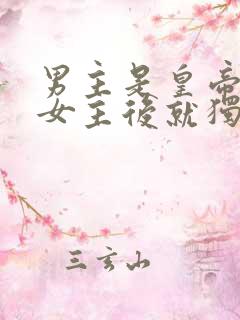 男主是皇帝
女主後就獨
三玄山